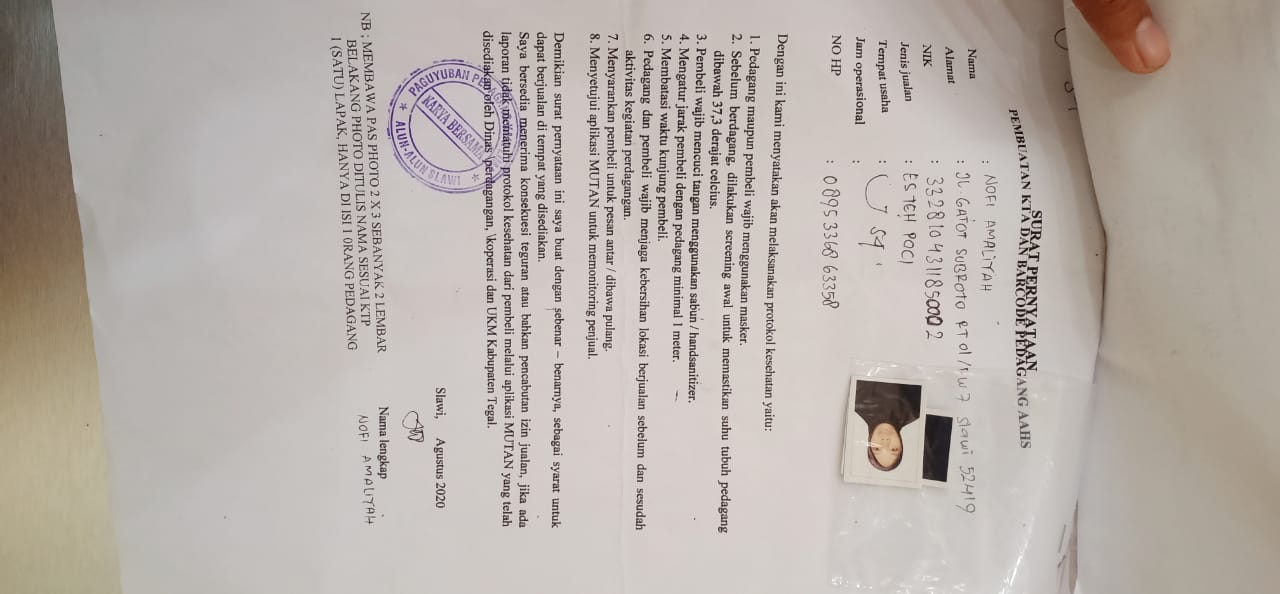 SURAT PERNYATAAN
PEMBUATAN KTA DAN BARCODE PEDAGANG AAHS
Nama : NOFI AMALIYAH
Alamat : JL. GATOT SUBROTO RT 01/RW 7 Slawi 52419
NIK : 3328104311850002
Jenis jualan : ES TEH POCI
Tempat usaha : U 59
Jam operasional :
NO HP : 0895336863358
Dengan ini kami menyatakan akan melaksanakan protokol kesehatan yaitu:
1. Pedagang maupun pembeli wajib menggunakan masker.
2. Sebelum berdagang, dilakukan screening awal untuk memastikan suhu tubuh pedagang
dibawah 37,3 derajat celcius.
3. Pembeli wajib mencuci tangan menggunakan sabun / handsanitizer.
4. Mengatur jarak pembeli dengan pedagang minimal 1 meter.
5. Membatasi waktu kunjung pembeli.
6. Pedagang dan pembeli wajib menjaga kebersihan lokasi berjualan sebelum dan sesudah
aktivitas kegiatan perdagangan.
7. Menyarankan pembeli untuk pesan antar / dibawa pulang.
8. Menyetujui aplikasi MUTAN untuk memonitoring penjual.
Demikian surat pernyataan ini saya buat dengan sebenar – benarnya, sebagai syarat untuk
dapat berjualan di tempat yang disediakan.
Saya bersedia menerima konsekuesi teguran atau bahkan pencabutan izin jualan, jika ada
laporan tidak mematuhi protokol kesehatan dari pembeli melalui aplikasi MUTAN yang telah
disediakan oleh Dinas perdagangan, \koperasi dan UKM Kabupaten Tegal.
PAGUYUBAN PEDAGANG
KARYA BERSAMA
ALUN-ALUN SLAWI
Slawi, Agustus 2020
Nama lengkap
NOFI AMALIYAH
NB ; MEMBAWA PAS PHOTO 2 X 3 SEBANYAK 2 LEMBAR
BELAKANG PHOTO DITULIS NAMA SESUAI KTP
1 (SATU) LAPAK, HANYA DI ISI 1 0RANG PEDAGANG